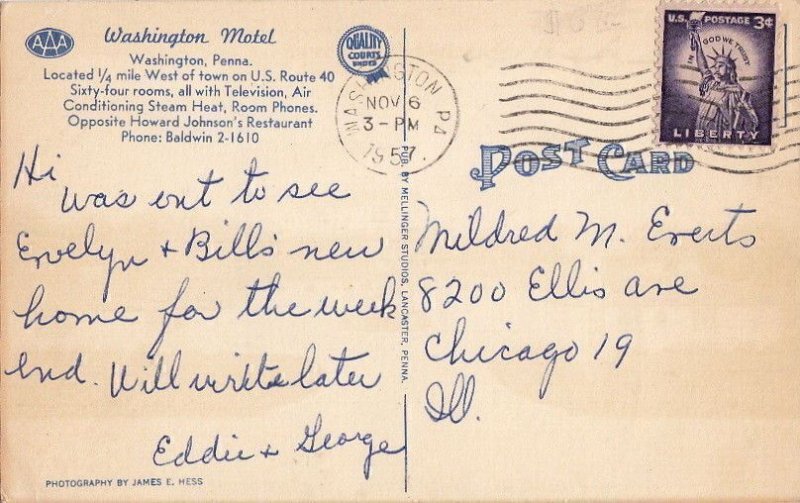 AAA
Washington Motel
QUALITY
COURTS
UNITED
Washington, Penna.
Located 1/4 mile West of town on U.S. Route 40
Sixty-four rooms, all with Television, Air
Conditioning Steam Heat, Room Phones.
Opposite Howard Johnson's Restaurant
Phone: Baldwin 2-1610
WASHINGTON PA
NOV 6
3-PM
1957
U.S. POSTAGE 3¢
IN GOD WE TRUST
LIBERTY
POST CARD
Hi
was out to see
Evelyn + Bill's new
home for the week
end. Will write later
Eddie + George
PUB. BY MELLINGER STUDIOS, LANCASTER, PENNA.
Mildred M. Everts
8200 Ellis ave
Chicago 19
Ill.
PHOTOGRAPHY BY JAMES E. HESS